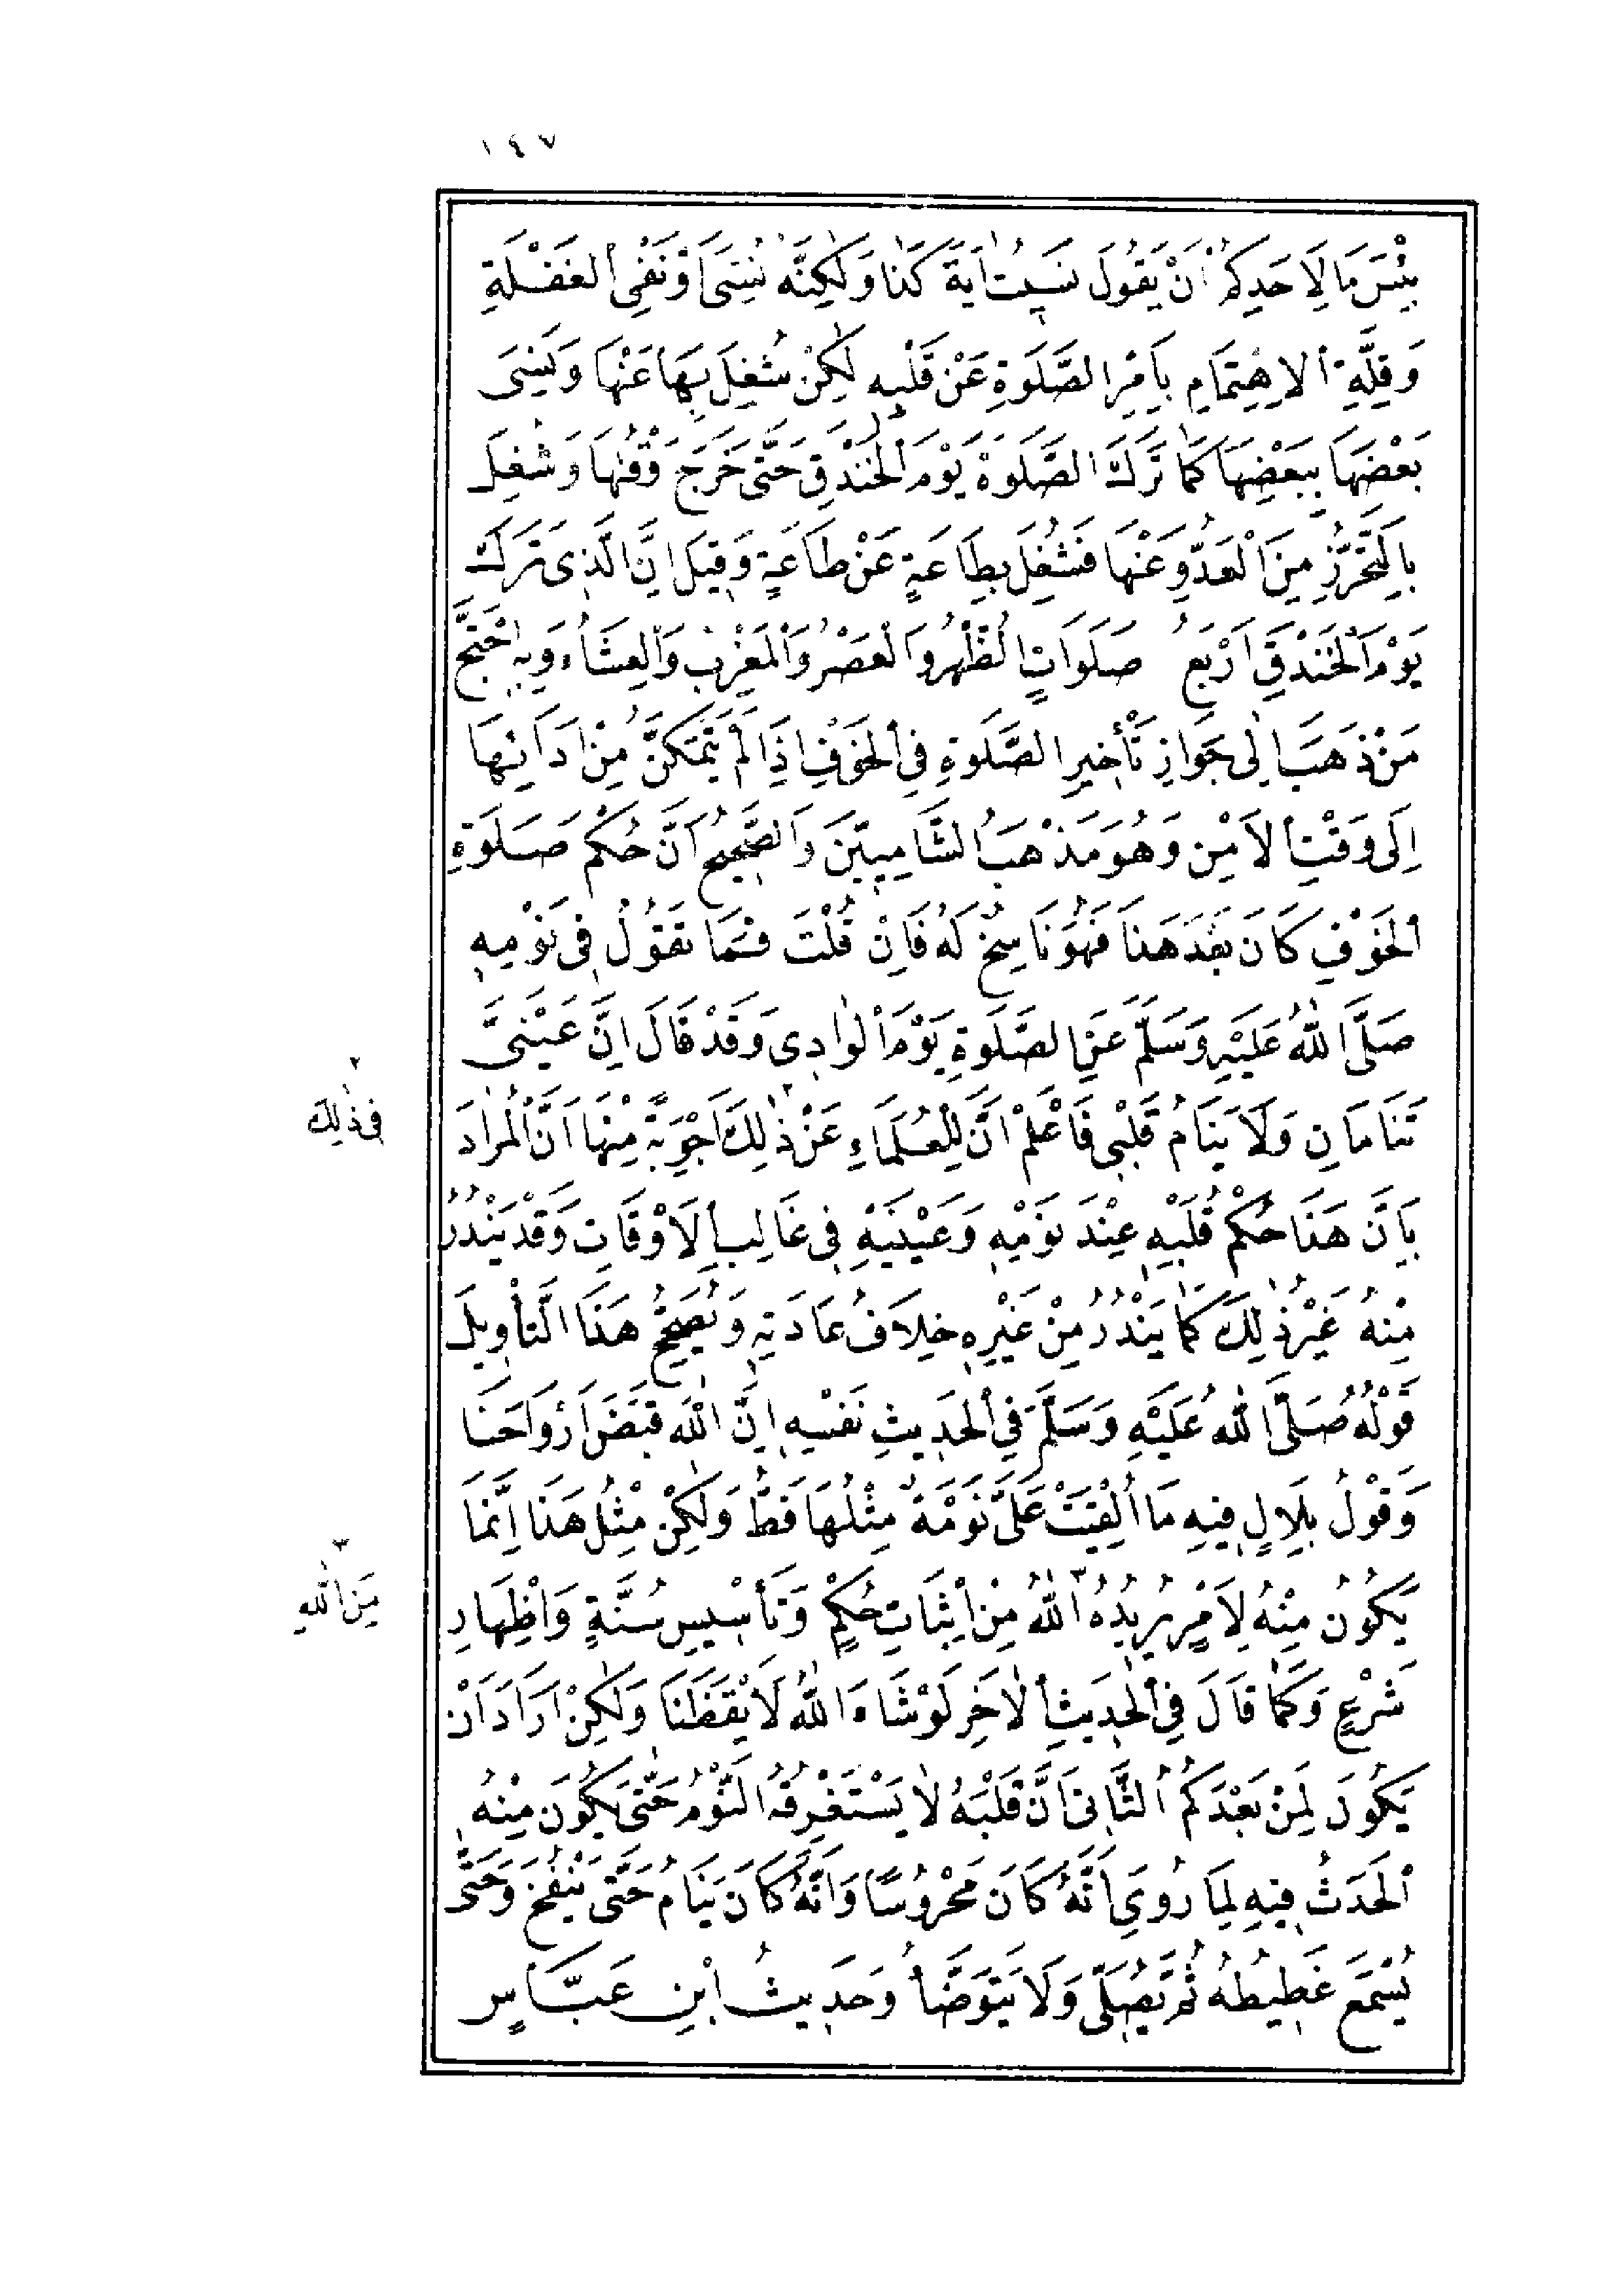 ١٤٧
بِئْسَ مَا لِاَحَدِكُمْ اَنْ يَقُولَ نَسِيتُ اٰيَةَ كَذَا وَلٰكِنَّهُ نُسِّىَ اَوْ نَفْىِ الْغَفْلَةِ
وَقِلَّةِ الْاِهْتِمَامِ بِاَمْرِ الصَّلَوةِ عَنْ قَلْبِهِ لٰكِنْ شُغِلَ بِهَا عَنْهَا وَنَسِىَ
بَعْضَهَا بِبَعْضِهَا كَمَا تَرَكَ الصَّلَوةَ يَوْمَ الْخَنْدَقِ حَتّٰى خَرَجَ وَقْتُهَا وَشُغِلَ
بِالتَّحَرُّزِ مِنَ الْعَدُوِّ عَنْهَا فَشُغِلَ بِطَاعَةٍ عَنْ طَاعَةٍ وَقِيلَ اِنَّ الَّذِى تَرَكَ
يَوْمَ الْخَنْدَقِ اَرْبَعُ صَلَوَاتٍ الظُّهْرُ وَالْعَصْرُ وَالْمَغْرِبُ وَالْعِشَاءُ وَبِهِ احْتَجَّ
مَنْ ذَهَبَ اِلٰى جَوَازِ تَأْخِيرِ الصَّلَوةِ فِى الْخَوْفِ اِذَا لَمْ يَتَمَكَّنْ مِنْ اَدَائِهَا
اِلَى وَقْتِ الْاَمْنِ وَهُوَ مَذْهَبُ الشَّامِيِّينَ وَالصَّحِيحُ اَنَّ حُكْمَ صَلَوةِ
الْخَوْفِ كَانَ بَعْدَ هَذَا فَهُوَ نَاسِخٌ لَهُ فَاِنْ قُلْتَ فَمَا تَقُولُ فِى نَوْمِهِ
صَلَّى اللّٰهُ عَلَيْهِ وَسَلَّمَ عَنِ الصَّلَوةِ يَوْمَ الْوَادِى وَقَدْ قَالَ اِنَّ عَيْنَىَّ
تَنَامَانِ وَلَا يَنَامُ قَلْبِى فَاعْلَمْ اَنَّ لِلْعُلَمَاءِ عَنْ ذٰلِكَ اَجْوِبَةً مِنْهَا اَنَّ الْمُرَادَ
٢
فِى ذٰلِكَ
بِاَنَّ هَذَا حُكْمُ قَلْبِهِ عِنْدَ نَوْمِهِ وَعَيْنَيْهِ فِى غَالِبِ الْاَوْقَاتِ وَقَدْ يَنْدُرُ
مِنْهُ غَيْرُ ذٰلِكَ كَمَا يَنْدُرُ مِنْ غَيْرِهِ خِلَافُ عَادَتِهِ وَيُصَحِّحُ هَذَا التَّأْوِيلَ
قَوْلُهُ صَلَّى اللّٰهُ عَلَيْهِ وَسَلَّمَ فِى الْحَدِيثِ نَفْسِهِ اِنَّ اللّٰهَ قَبَضَ اَرْوَاحَنَا
وَقَوْلُ بِلَالٍ فِيهِ مَا اُلْقِيَتْ عَلَىَّ نَوْمَةٌ مِثْلُهَا قَطُّ وَلٰكِنْ مِثْلُ هَذَا اِنَّمَا
يَكُونُ مِنْهُ لِاَمْرٍ يُرِيدُهُ اللّٰهُ مِنْ اِثْبَاتِ حُكْمٍ وَتَأْسِيسِ سُنَّةٍ وَاِظْهَارِ
٣
مِنَ اللّٰهِ
شَرْعٍ وَكَمَا قَالَ فِى الْحَدِيثِ الْاٰخَرِ لَوْ شَاءَ اللّٰهُ لَاَيْقَظَنَا وَلٰكِنْ اَرَادَ اَنْ
يَكُونَ لِمَنْ بَعْدَكُمُ الثَّانِى اَنَّ قَلْبَهُ لَا يَسْتَغْرِقُهُ النَّوْمُ حَتّٰى يَكُونَ مِنْهُ
الْحَدَثُ فِيهِ لِمَا رُوِىَ اَنَّهُ كَانَ مَحْرُوسًا وَاَنَّهُ كَانَ يَنَامُ حَتّٰى يَنْفُخَ وَحَتّٰى
يُسْمَعَ غَطِيطُهُ ثُمَّ يُصَلِّى وَلَا يَتَوَضَّأُ وَحَدِيثُ ابْنِ عَبَّاسٍ